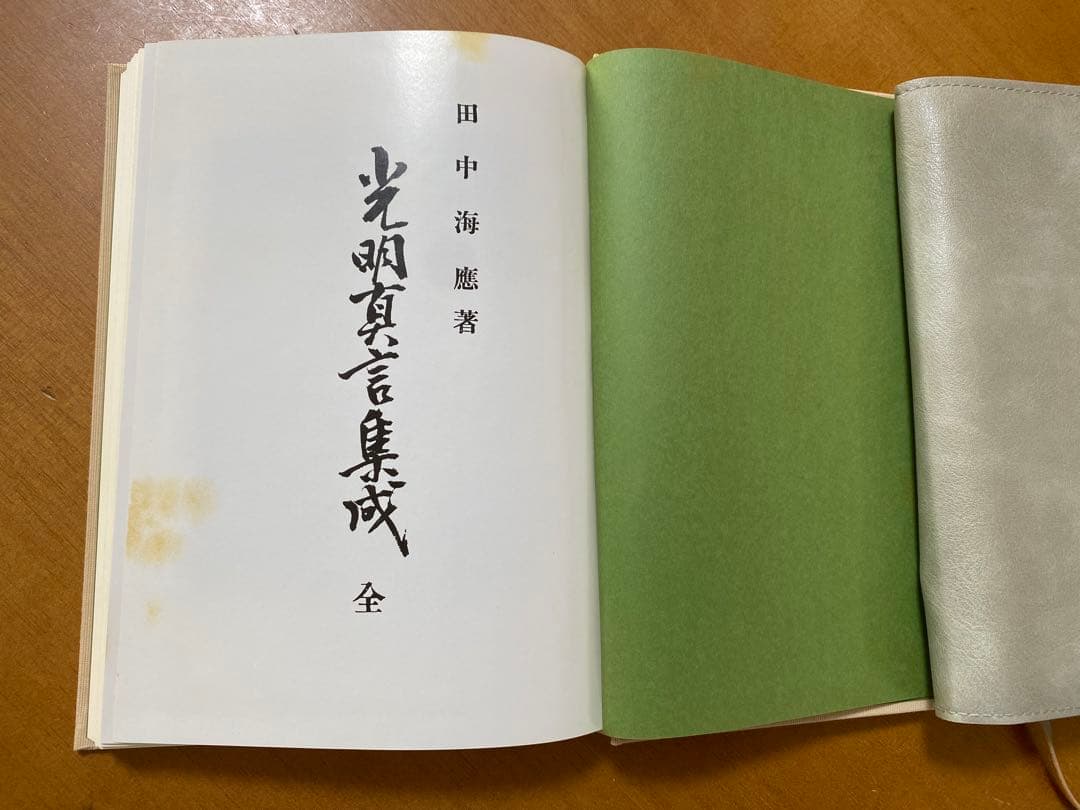 田中海應著
光明真言集成
全